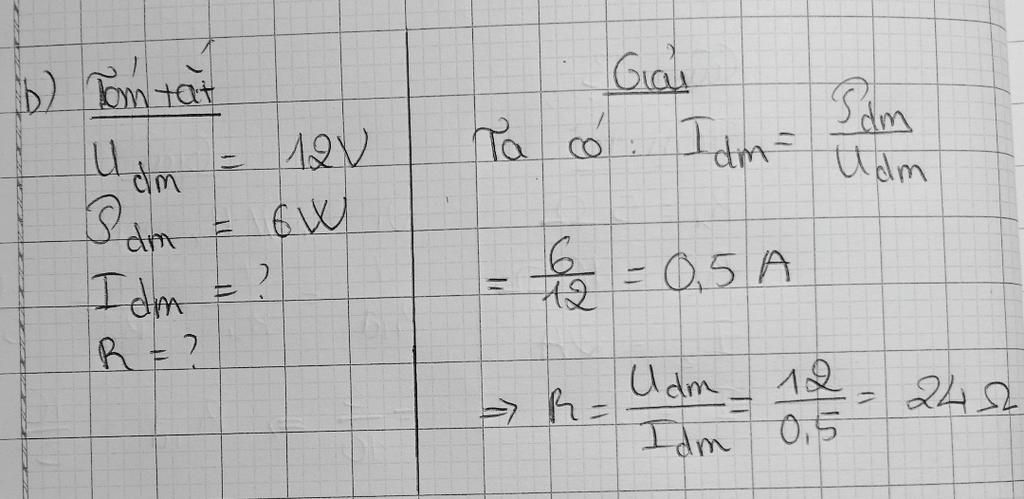 b) Tóm tắt
U dm = 12V
P dm = 6W
I dm = ?
R = ?
Giải
Ta có : I dm = P dm / U dm
= 6 / 12 = 0,5 A
=> R = U dm / I dm = 12 / 0,5 = 24 Ω